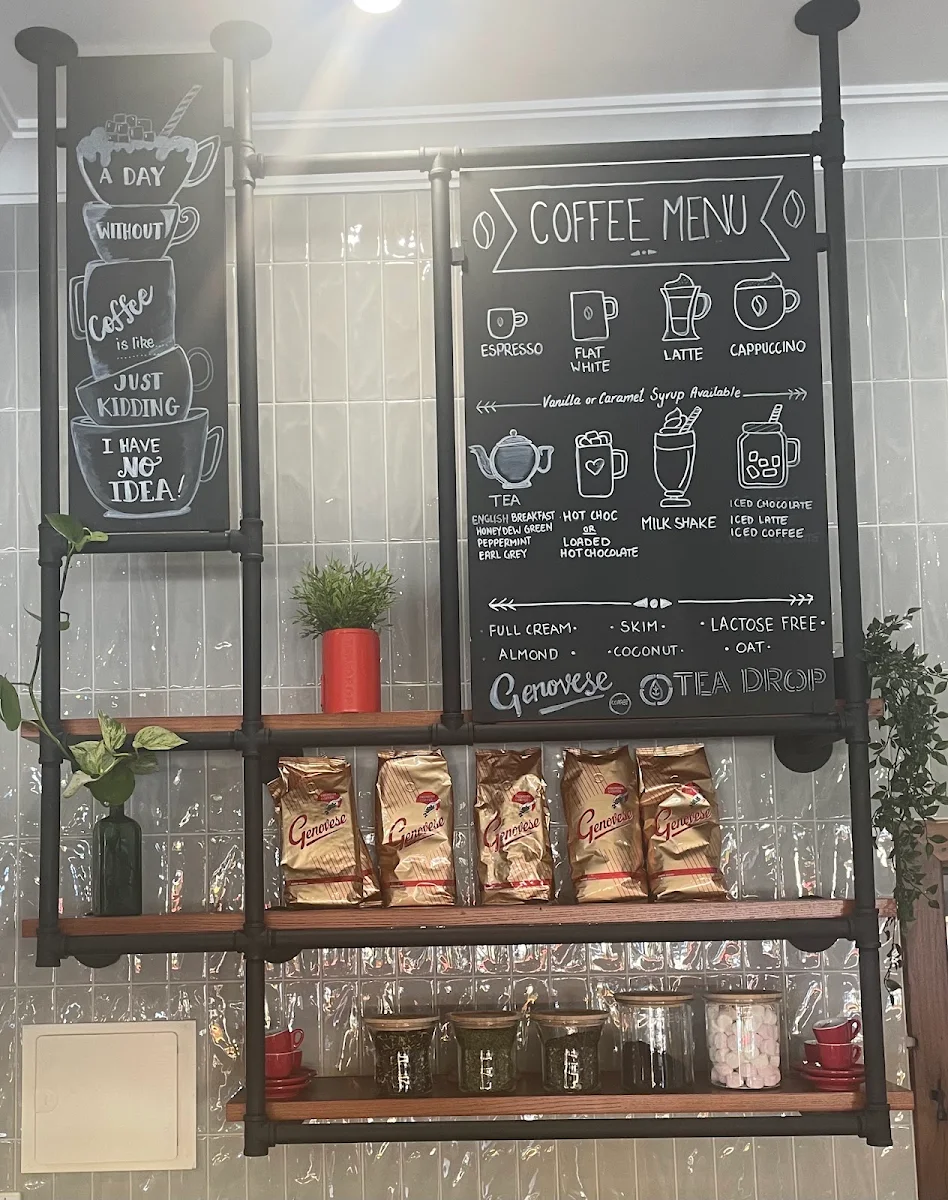 A DAY
WITHOUT
Coffee
is like...
JUST
KIDDING
I HAVE
NO
IDEA!
COFFEE MENU
ESPRESSO
FLAT
WHITE
LATTE
CAPPUCCINO
Vanilla or Caramel Syrup Available
TEA
ENGLISH BREAKFAST
HONEYDEW GREEN
PEPPERMINT
EARL GREY
HOT CHOC
OR
LOADED
HOT CHOCOLATE
MILKSHAKE
ICED CHOCOLATE
ICED LATTE
ICED COFFEE
FULL CREAM • • SKIM • • LACTOSE FREE •
ALMOND • • COCONUT • • OAT •
Genovese coffee TEA DROP
Genovese
Genovese
Genovese
Genovese
Genovese